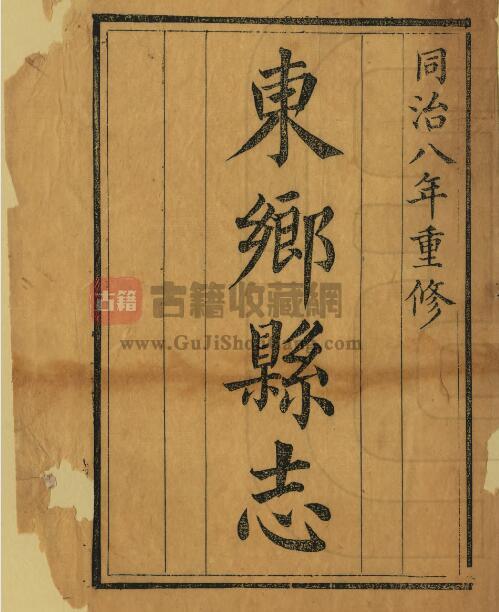 同治八年重修
東鄉縣志
古籍 古籍收藏網